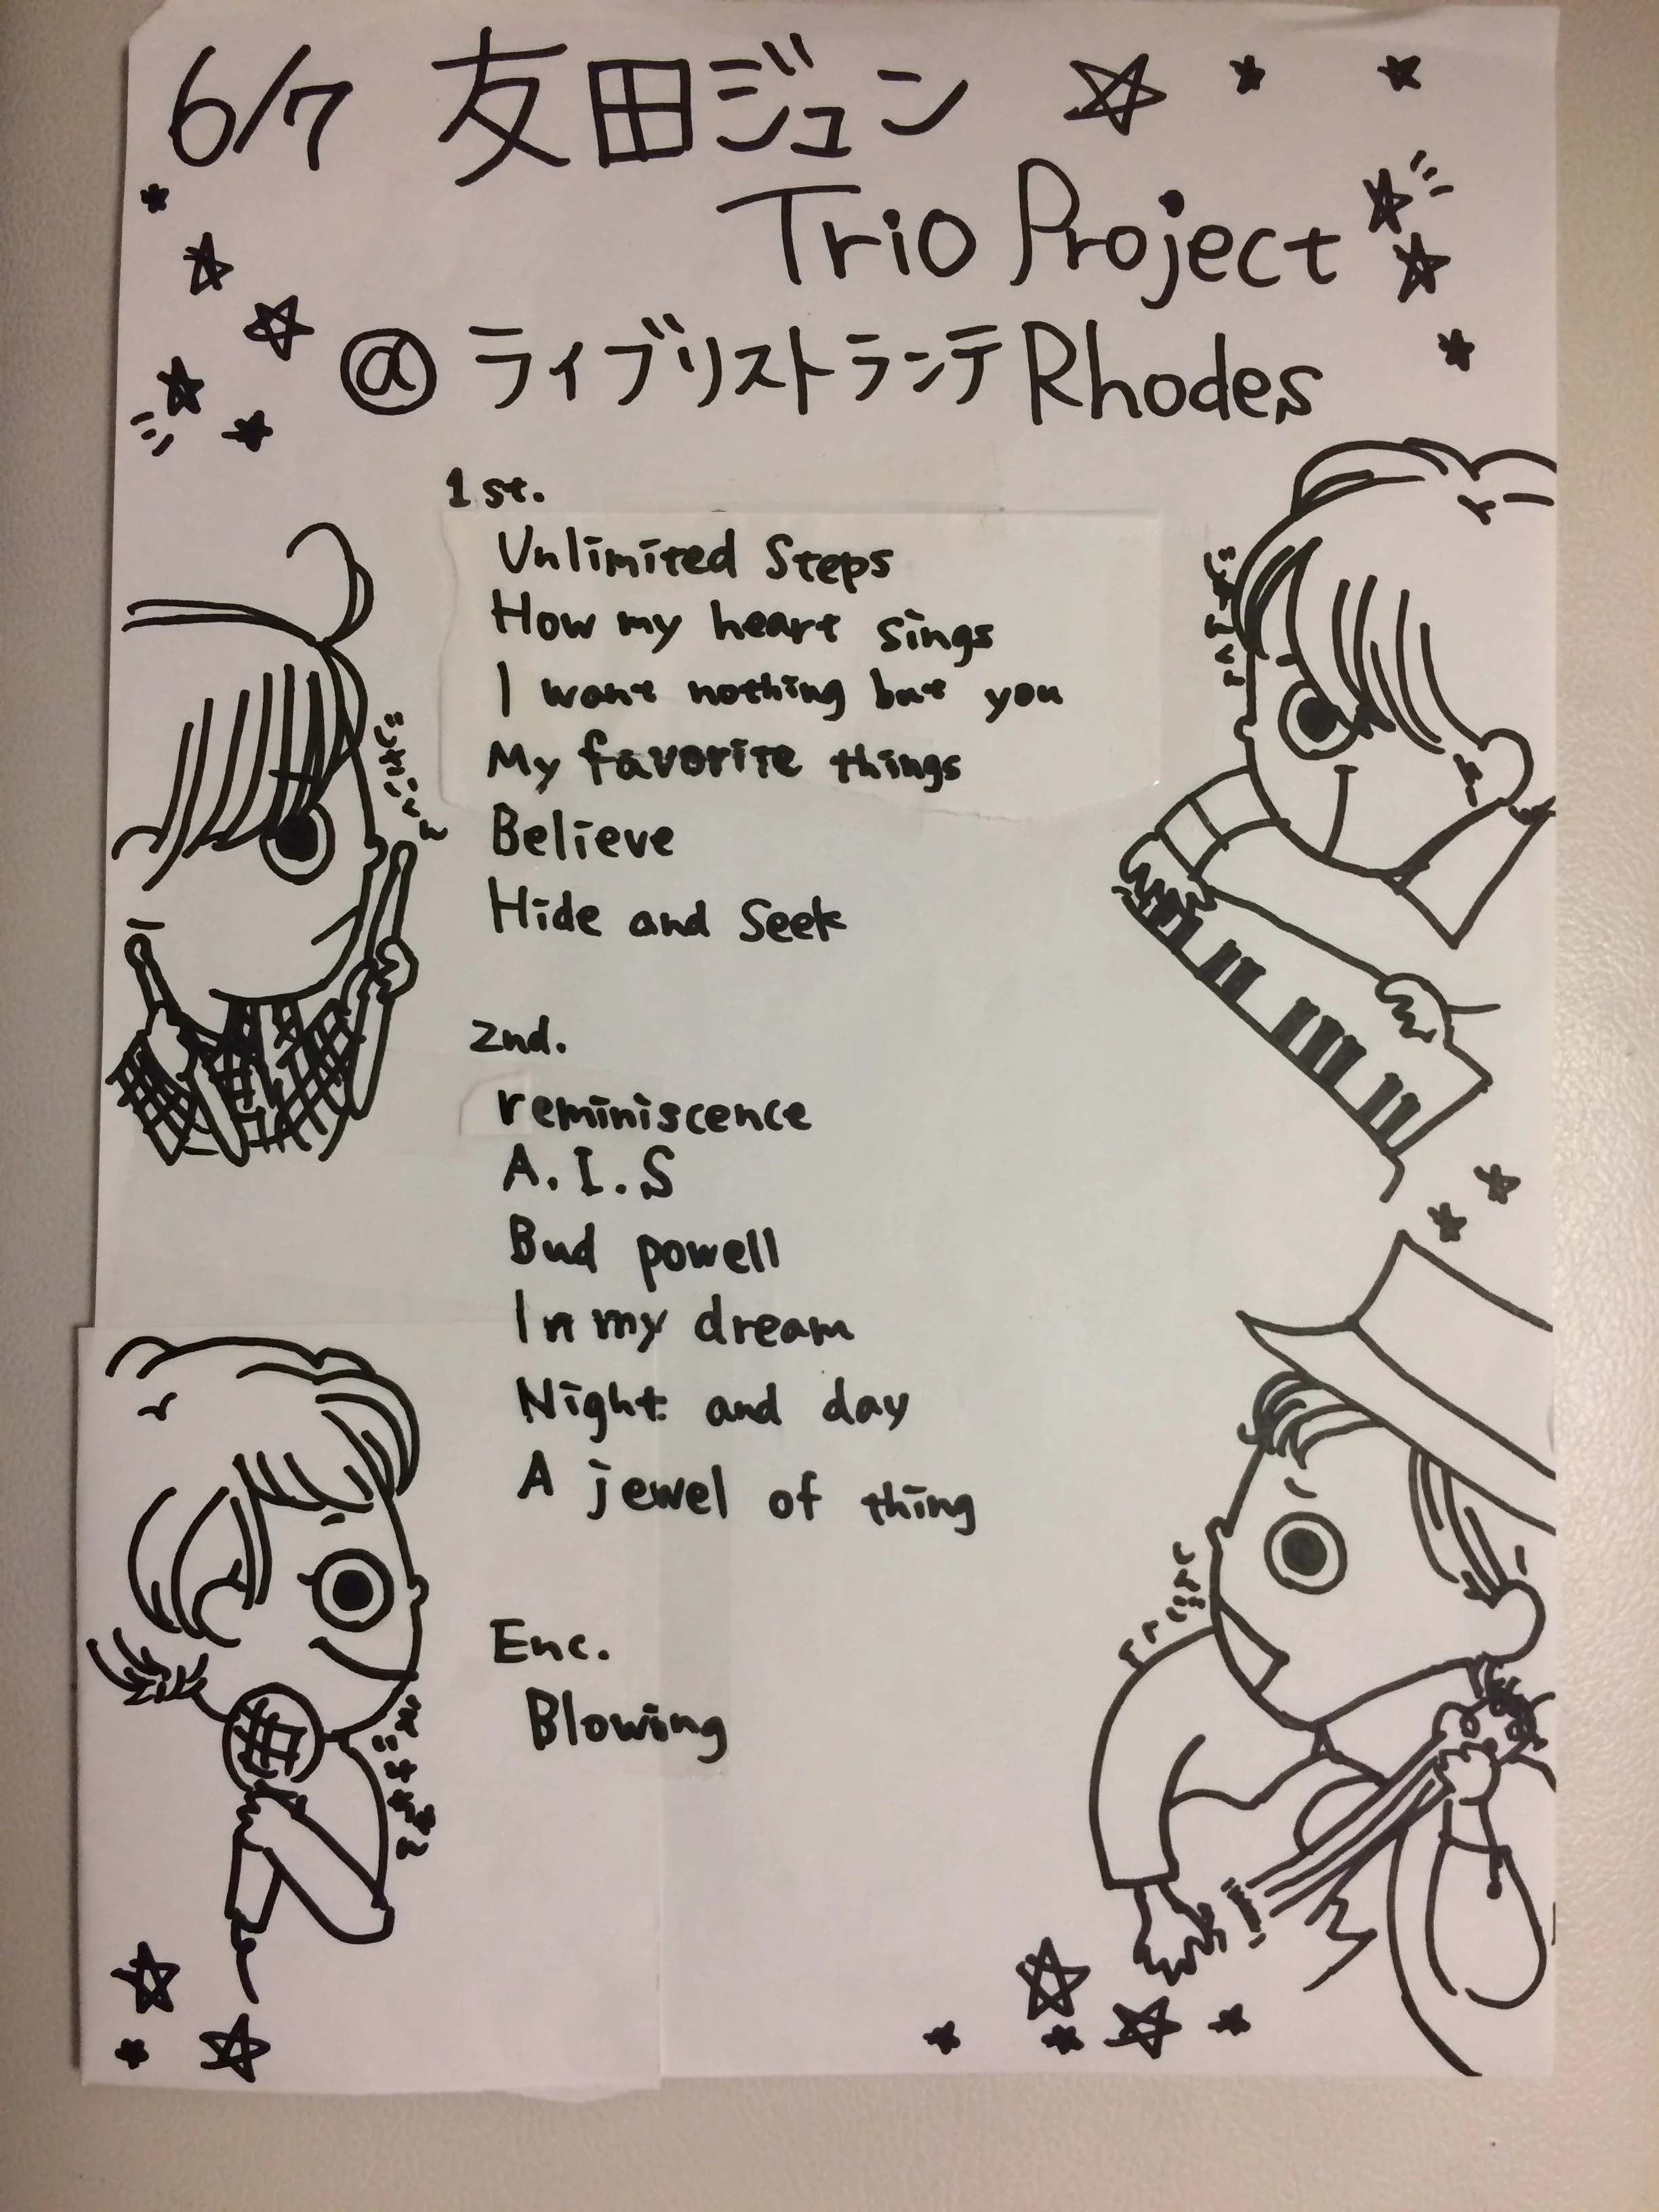 6/7 友田ジュン
Trio Project
@ライブリストランテRhodes
1st.
Unlimited Steps
How my heart sings
I want nothing but you
My favorite things
Believe
Hide and Seek
2nd.
reminiscence
A.I.S
Bud powell
In my dream
Night and day
A jewel of thing
Enc.
Blowing